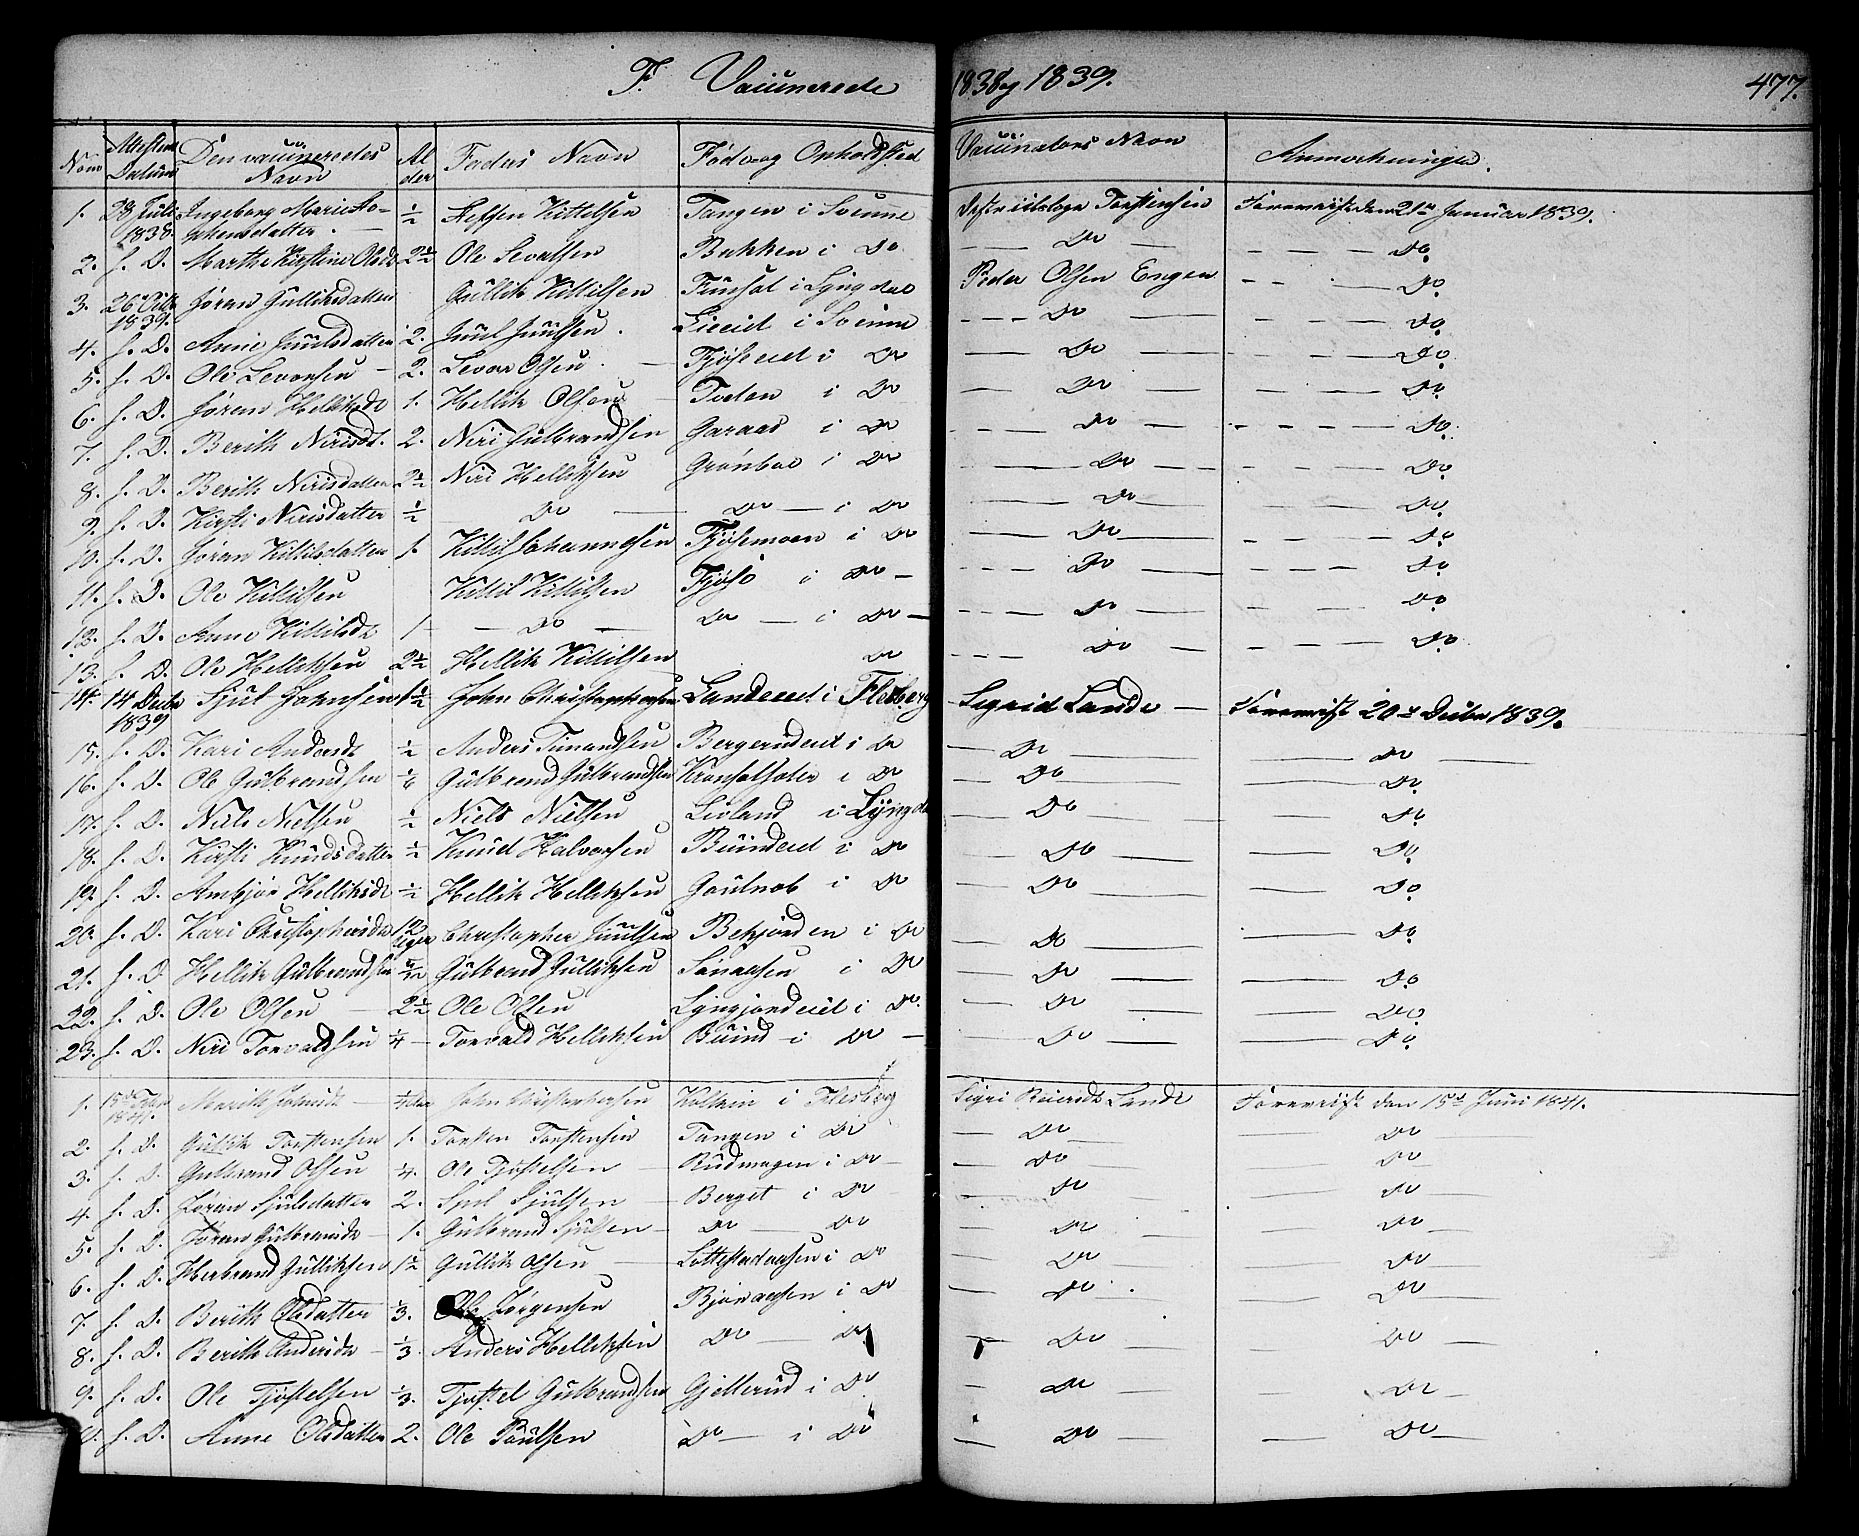 F. Vaccinerede 1838 og 1839. 477.
Num Attestens Datum Den vaccineredes Navn Alder Faders Navn Føde og Opholdsted Vaccinators Navn Anmærkninger.
1. 28 Juli 1838. Ingeborg Marie ½ Steffen Kittelsen Tangen i Svenne Torstensen Foreviist den 21de Januar 1839.
2. s. D. Marthe Kirstine Olsd 2½ Ole Bakken i Do — Do — — Do
3. 26 Octb 1839. Jøran Gulliksdatter Gullik Kittilsen i Lyngdal Peder Olsen Engen — Do
4. s. D. Anne Juulsdatter 2. Juul Juulsen. i Svenne — Do — Do
5. s. D. Ole Levorsen — 2. Levor Olsen. — i Do — Do — Do
6. s. D. Jøran Helliksdt 1. Hellik Olsen i Do — Do — Do
7. s. D. Berith Nirisdt. 2. Niri Gulbrandsen Garaas i Do — Do — Do
8. s. D. Berith Nirisdatter 2½ Niri Helliksen Grønbæ i Do — Do — Do
9. s. D. Kirsti Nirisdatter ½ — Do — Do — i Do — Do — Do
10. s. D. Jøran Kittilsdatter 1. Kittil Johannesen Tjøsemoen i Do — Do — Do
11. s. D. Ole Kittilsen Kittil Kittilsen Tjøsø i Do — — Do — Do
12. s. D. Anne Kittilsdt 1 — — Do — Do — i Do — — Do — Do
13. s. D. Ole Helliksen 2½ Hellik Kittilsen Do — Do — Do
14. 14 Decbr 1839 Sjul Johnsen 1½ John Christophersen i Flesberg Sigrid Lande — Foreviist 20de Decbr 1839.
15. s. D. Kari Andersdt ½ Anders Bergerudeiet i Do — Do — Do
16. s. D. Ole Gulbrandsen Gulbrand Gulbrandsen i Do — Do — Do
17. s. D. Niels Nielsen ½ Niels Nielsen Livland i Lyngdal — Do — Do
18. s. D. Kirsti Knudsdatter ½ Knud Halvorsen i Do — Do — Do
19. s. D. Helliksdt ½ Hellik Helliksen i Do — Do — Do
20. s. D. Kari Christophersdr 12 Uger Christopher Juulsen Bekjorden i Do — Do — Do
21. s. D Hellik Gulbrandsen Gulbrand Gulliksen i Do — Do — Do
22. s. D. Ole Olsen — 2½ Ole Olsen Lyngjordeiet i Do. — Do — Do
23. s. D. Niri Torvaldsen ¼ — Torvald Helliksen Buind i Do — — Do — Do
1. 15de Febr 1841. Marith Johnsdt — ¼ John Christophersen i Flesberg Sigri Lande Foreviist den 15de Juni 1841.
2. s. D. Gullik Torstensen 1. Torsten Torstensen Tangen i Do — Do — Do
3. s. D. Gulbrand Olsen ¼. Ole Tjøstelsen — i Do — — Do — Do
4. s. D. Jøran Sjulsdatter 2. Sjul Sjulsen — Berget i Do — Do — Do
5. s. D. Jøran Gulbrandsdr — 1. Gulbrand Sjulsen — Do — Do — Do — Do —
6. s. D. Herbrand Gulliksen 1½ Gullik Olsen — i Do — Do — Do —
7. s. D. Berith Olsdatter ⅓. Ole Jørgensen Bjønaasen i Do — Do — Do —
8. s. D. Berith Andersdr — ⅓. Anders Helliksen Do — Do — Do — Do —
9. s. D. Ole Tjøstelsen ⅓. Tjøstel Gulbrandsen Gjellerud i Do — Do — Do —
s. D. Anne Olsdatter 2. Ole Poulsen Do — i Do — Do — Do —